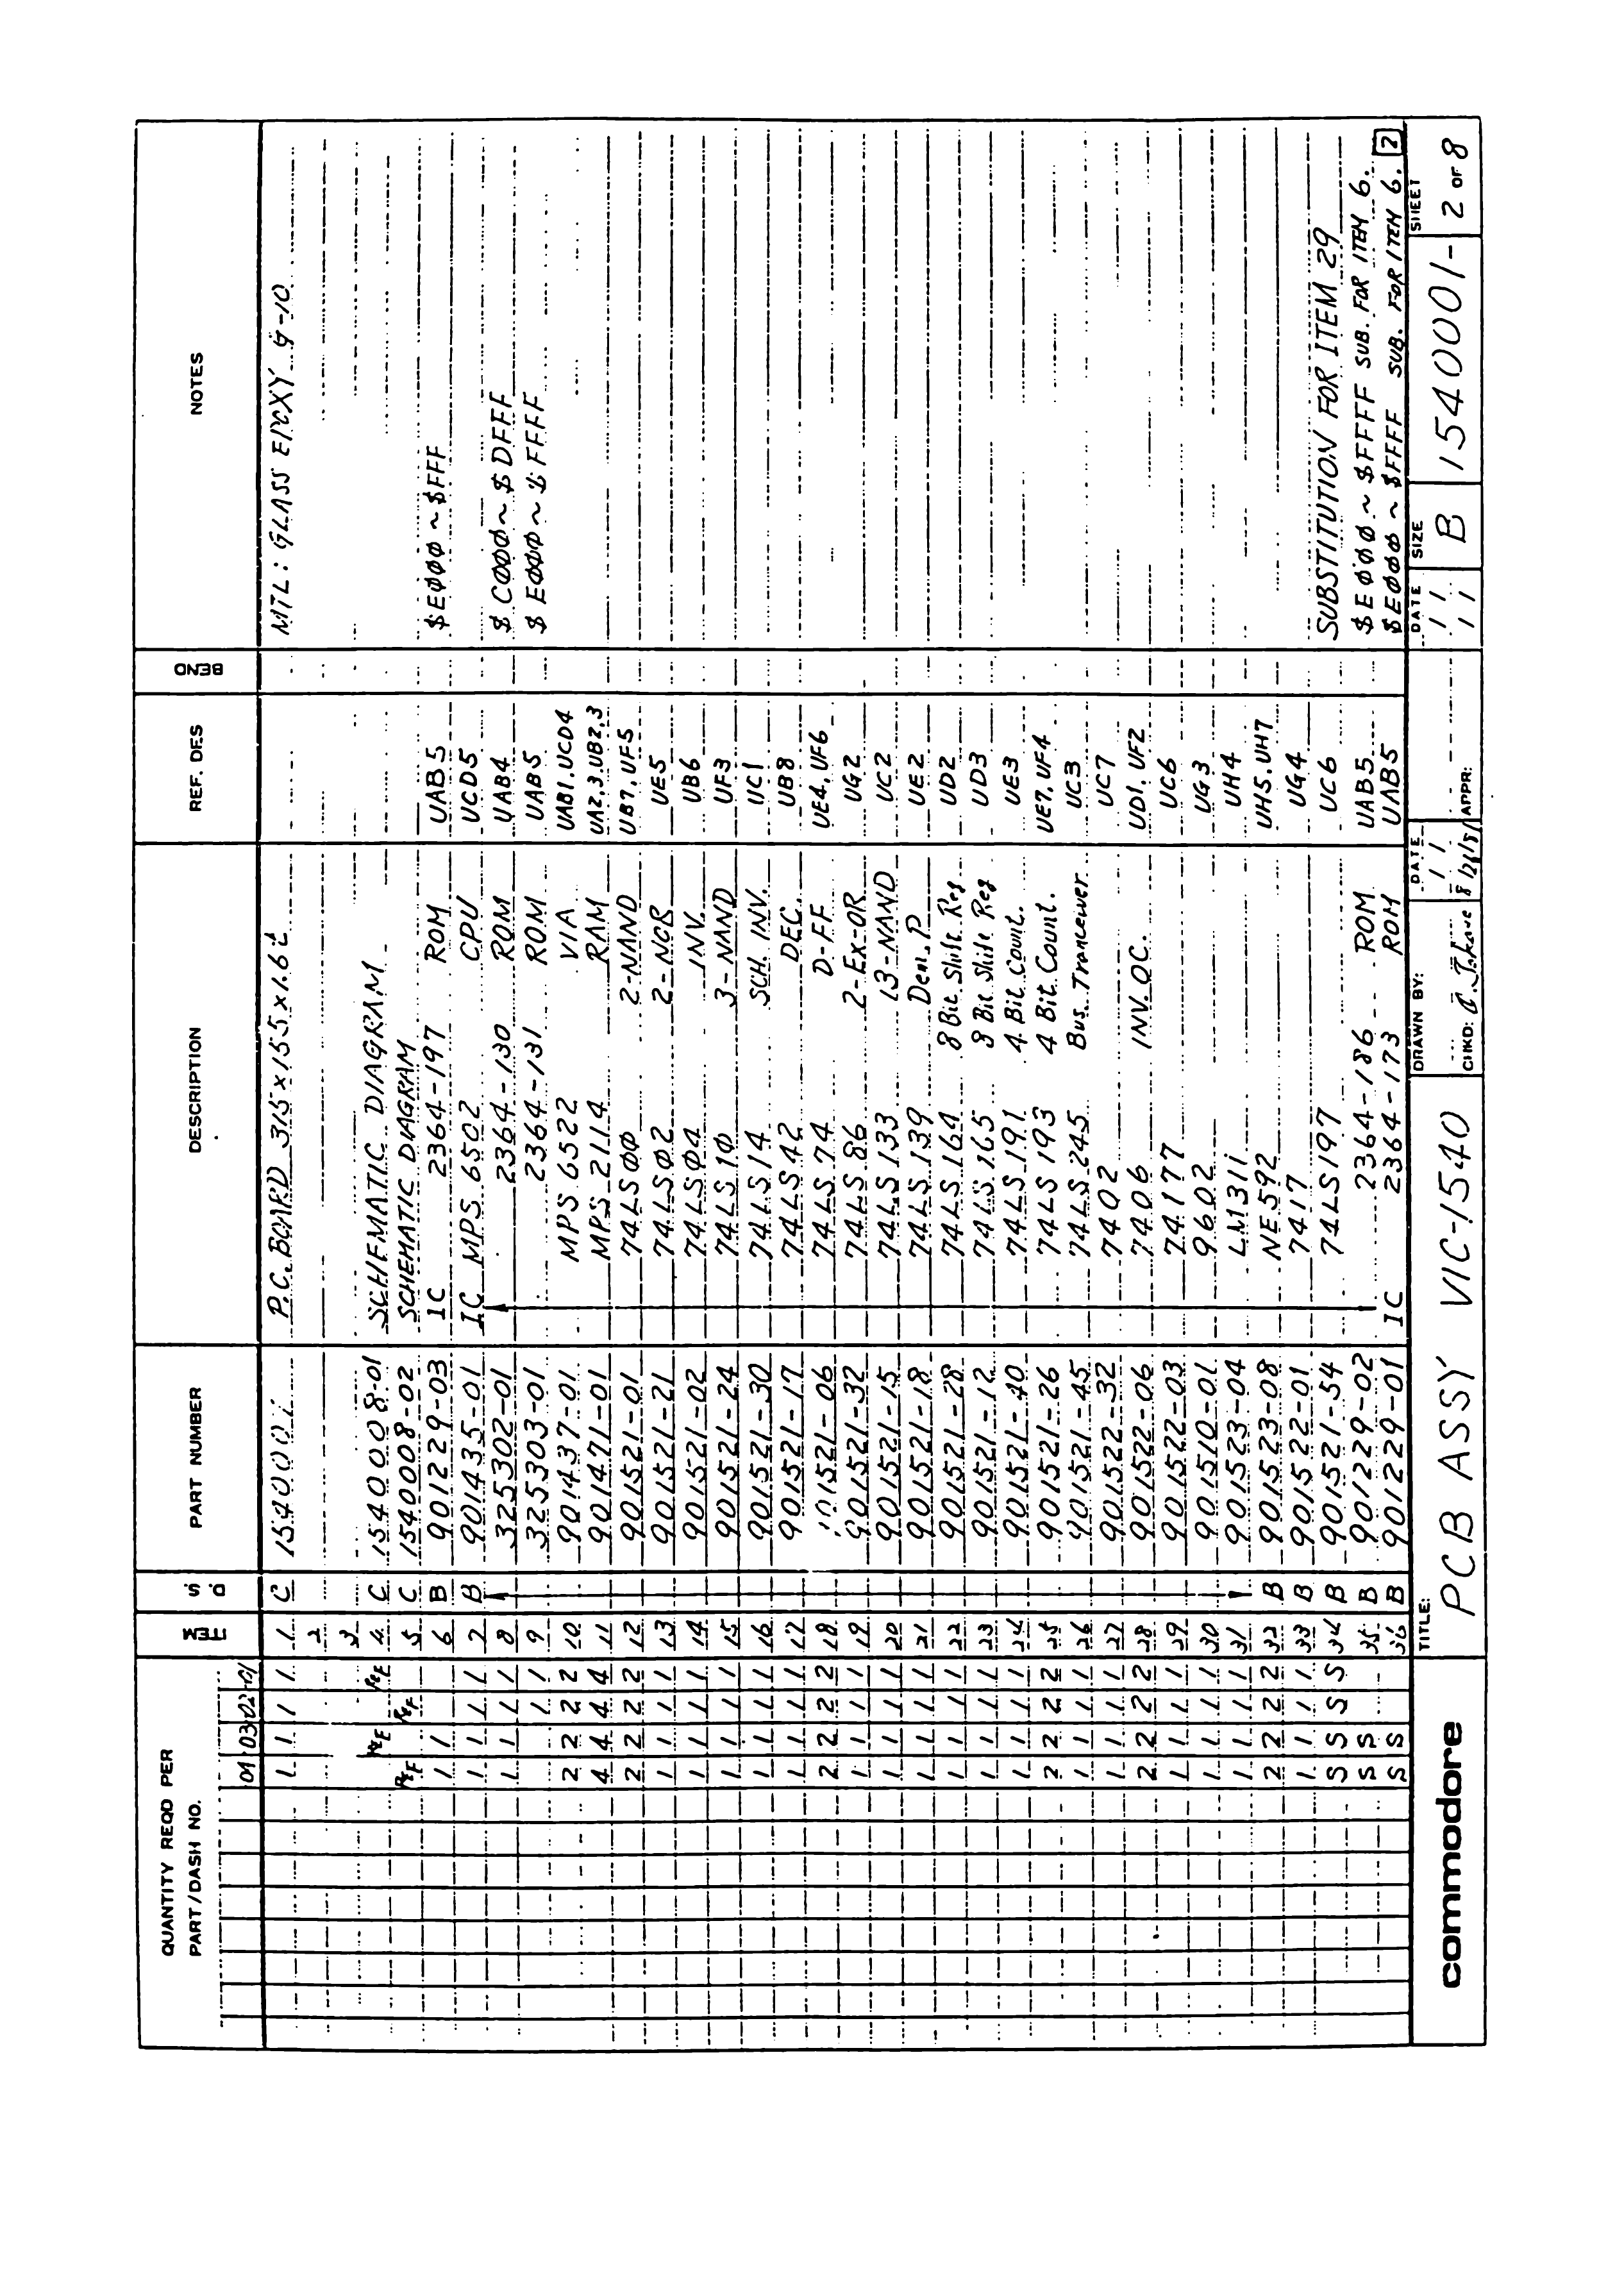 QUANTITY REQD PER PART/DASH NO. ITEM D.S. PART NUMBER DESCRIPTION REF. DES BEND NOTES
03 02 01
1 1 1 1 1 C P.C. BOARD 315x155x1.6t MTL: GLASS
2
3
REF REF 4 C 1540008-01 SCHEMATIC DIAGRAM
REF REF 5 C 1540008-02 SCHEMATIC DIAGRAM
1 1 6 B 901229-03 IC 2364-197 ROM UAB5 $EØØØ~$FFF
1 1 1 1 7 B 901435-01 IC MPS 6502 CPU UCD5
1 1 1 1 8 325302-01 2364-130 ROM UAB4 $CØØØ~$DFFF
1 1 9 325303-01 2364-131 ROM UAB5 $EØØØ~$FFFF
2 2 2 2 10 901437-01 MPS 6522 VIA UAB1,UCD4
4 4 4 4 11 901471-01 MPS 2114 RAM UA2,3,UB2,3
2 2 2 2 12 901521-01 74LSØØ 2-NAND UB7,UF5
1 1 1 1 13 901521-21 74LSØ2 2-NOR UE5
1 1 1 1 14 901521-02 74LSØ4 INV. UB6
1 1 1 1 15 901521-24 74LS1Ø 3-NAND UF3
1 1 1 1 16 901521-30 74LS14 SCH. INV. UC1
1 1 1 1 17 901521-17 74LS42 DEC. UB8
2 2 2 2 18 901521-06 74LS74 D-FF UE4,UF6
1 1 1 1 19 901521-32 74LS86 2-EX-OR UG2
1 1 1 1 20 901521-15 74LS133 13-NAND UC2
1 1 1 1 21 901521-18 74LS139 UE2
1 1 1 1 22 901521-28 74LS164 8 Bit Shift Reg UD2
1 1 1 1 23 901521-12 74LS165 8 Bit Shift Reg UD3
1 1 1 1 24 901521-40 74LS191 4 Bit Count. UE3
2 2 2 2 25 901521-26 74LS193 4 Bit Count. UE7,UF4
1 1 1 1 26 901521-45 74LS245 Bus Tranceiver UC3
1 1 1 1 27 901522-32 7402 UC7
2 2 2 2 28 901522-06 7406 INV. OC. UD1,UF2
1 1 1 1 29 901522-03 74177 UC6
1 1 1 1 30 901510-01 9602 UG3
1 1 1 1 31 901523-04 LM311 UH4
2 2 2 2 32 B 901523-08 NE592 UH5,UH7
1 1 1 1 33 B 901522-01 7417 UG4
S S S S 34 B 901521-54 74LS197 UC6 SUBSTITUTION FOR ITEM 29
S S 35 B 901229-02 2364-186 ROM UAB5 $EØØØ~$FFFF SUB. FOR ITEM 6.
S S 36 B 901229-01 IC 2364-173 ROM UAB5 $EØØØ~$FFFF SUB. FOR ITEM 6. 2
commodore
TITLE:
PCB ASSY VIC-1540
DRAWN BY: DATE
CHKD: APPR:
DATE SIZE SHEET
B 1540001- 2 OF 8